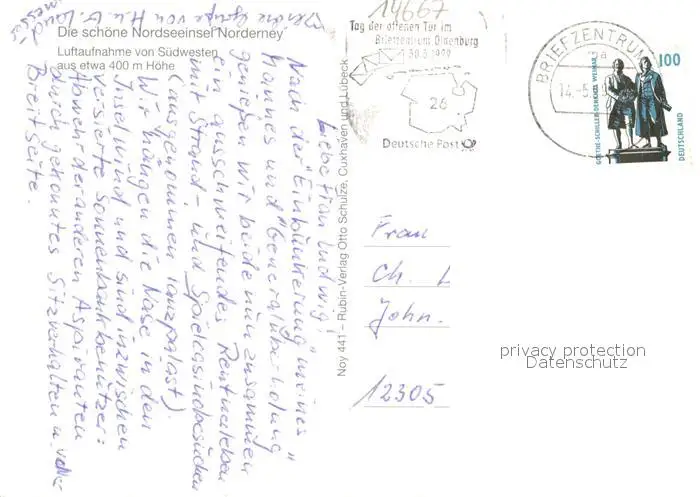 Die schöne Nordseeinsel Norderney
Luftaufnahme von Südwesten
aus etwa 400 m Höhe
Noy 441 – Rubin-Verlag Otto Schulze, Cuxhaven und Lübeck
14667
Tag der offenen Tür im
Briefzentrum Oldenburg
30.5.1999
26
Deutsche Post
BRIEFZENTRUM
14.-5.
100
GOETHE-SCHILLER-DENKMAL WEIMAR
DEUTSCHLAND
Liebe Frau Ludwig!
Nach der "Einbunkerung" meines
Mannes und "Generalüberholung"
genießen wir beide nun zusammen
ein ausschweifendes Rentnerleben
mit Strand- und Spielcasinobesuchen
(ausgenommen Tanzpalast).
Wir hängen die Nase in den
Inselwind und sind inzwischen
versierte Sonnenbankbenutzer:
Abwehr der anderen Aspiranten
durch gekonntes Sitzverhalten u. volle
Breitseite.
von H. u. G.
Frau
Ch. L
John.
12305
privacy protection
Datenschutz